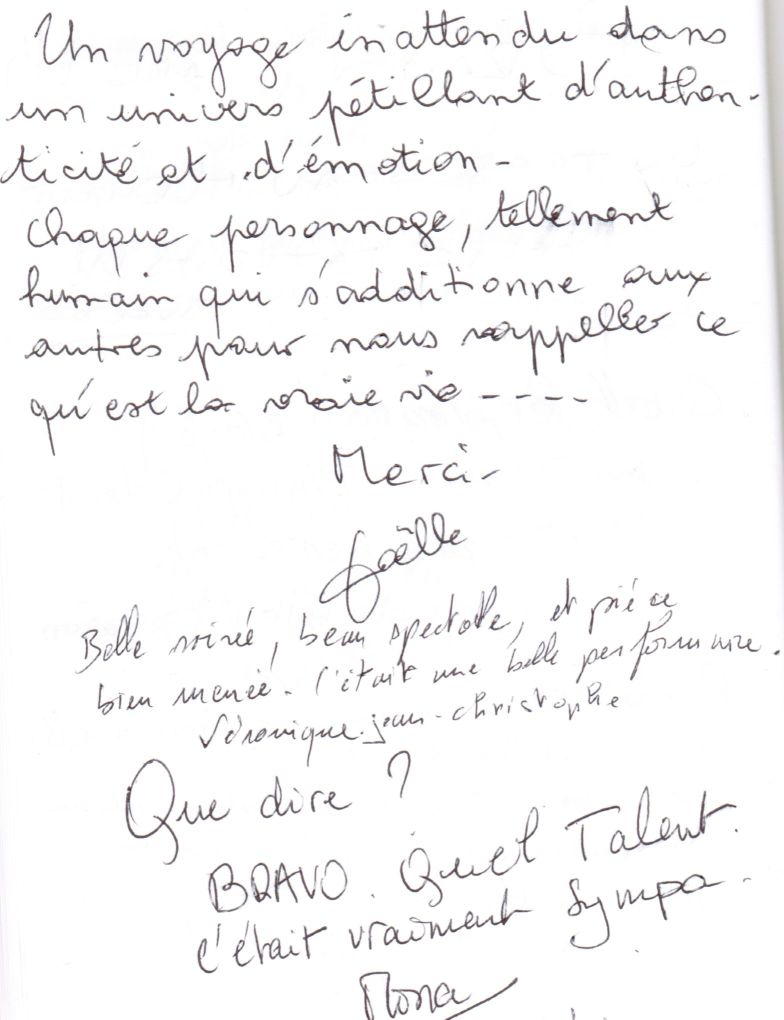 Un voyage inattendu dans
un univers pétillant d'authen-
ticité et d'émotion -
chaque personnage, tellement
humain qui s'additionne aux
autres pour nous rappeller ce
qu'est la vraie vie ----
Merci -
Gaëlle
Belle soirée, beau spectacle, et pièce
bien menée. C'était une belle performance.
Véronique. jean-christophe
Que dire ?
BRAVO. Quel Talent.
c'était vraiment sympa -
Mona